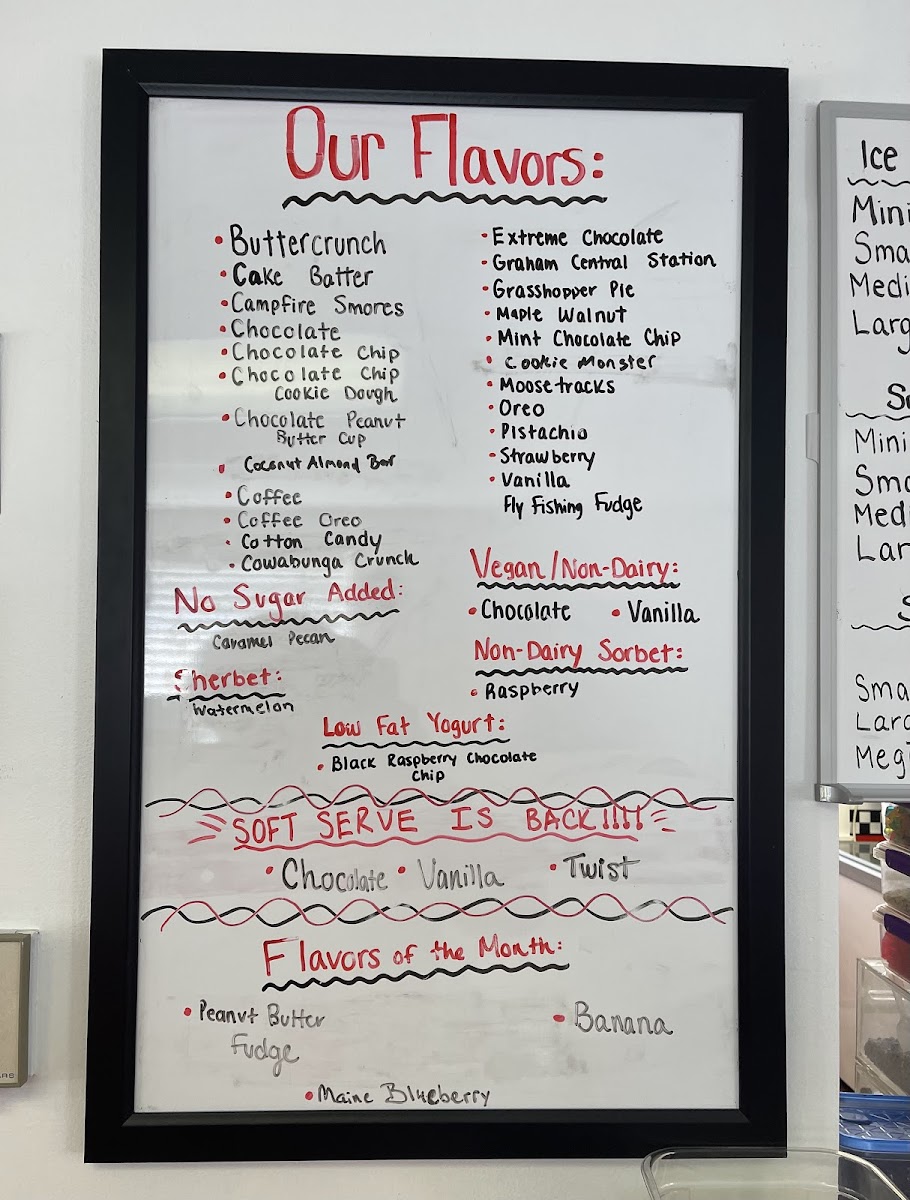 Our Flavors:
• Buttercrunch
• Cake Batter
• Campfire Smores
• Chocolate
• Chocolate Chip
• Chocolate Chip
Cookie Dough
• Chocolate Peanut
Butter Cup
• Coconut Almond Bar
• Coffee
• Coffee Oreo
• Cotton Candy
• Cowabunga Crunch
• Extreme Chocolate
• Graham Central Station
• Grasshopper Pie
• Maple Walnut
• Mint Chocolate Chip
• Cookie Monster
• Moosetracks
• Oreo
• Pistachio
• Strawberry
• Vanilla
Fly Fishing Fudge
No Sugar Added:
Caramel Pecan
Sherbet:
Watermelon
Vegan/Non-Dairy:
• Chocolate • Vanilla
Non-Dairy Sorbet:
• Raspberry
Low Fat Yogurt:
• Black Raspberry Chocolate
Chip
SOFT SERVE IS BACK!!!!
• Chocolate • Vanilla • Twist
Flavors of the Month:
• Peanut Butter
Fudge
• Banana
• Maine Blueberry
Ice
Mini
Sma
Medi
Larg
Mini
Sma
Med
Lar
Sma
Larg